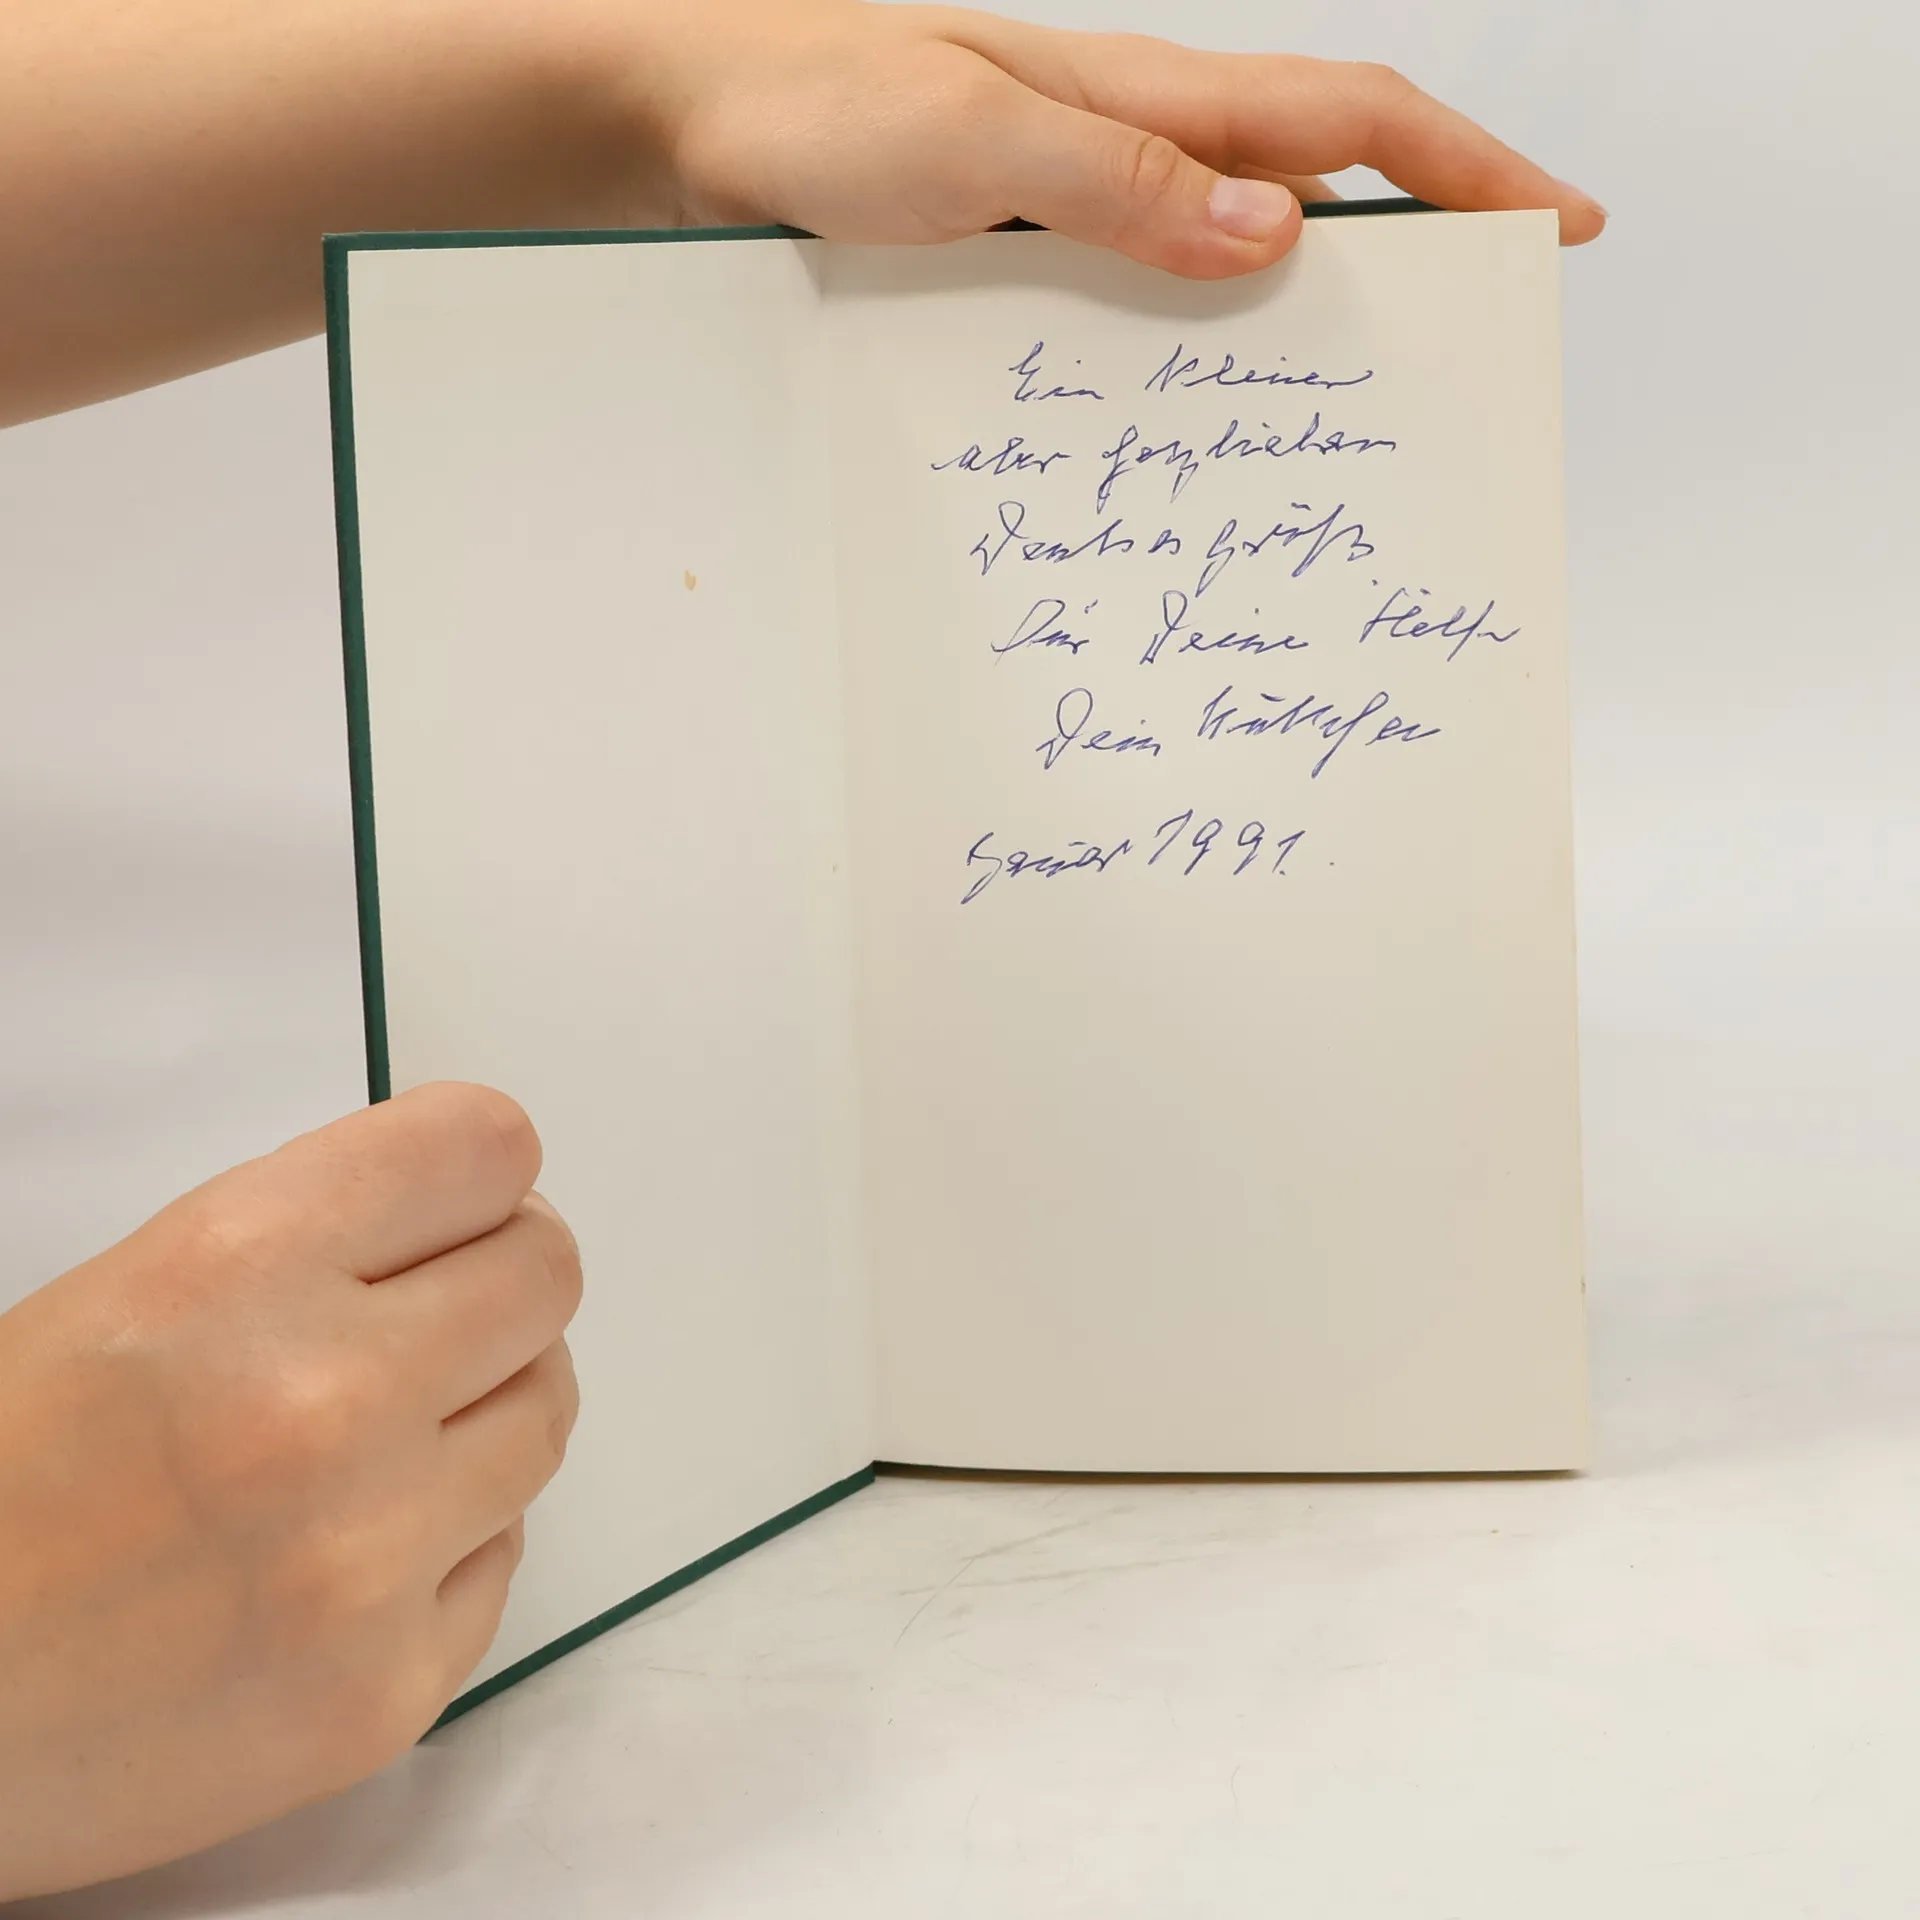 Ein kleiner
aber herzlicher
Dankesgruß
für Deine Hilfe
Dein
Januar 1991.